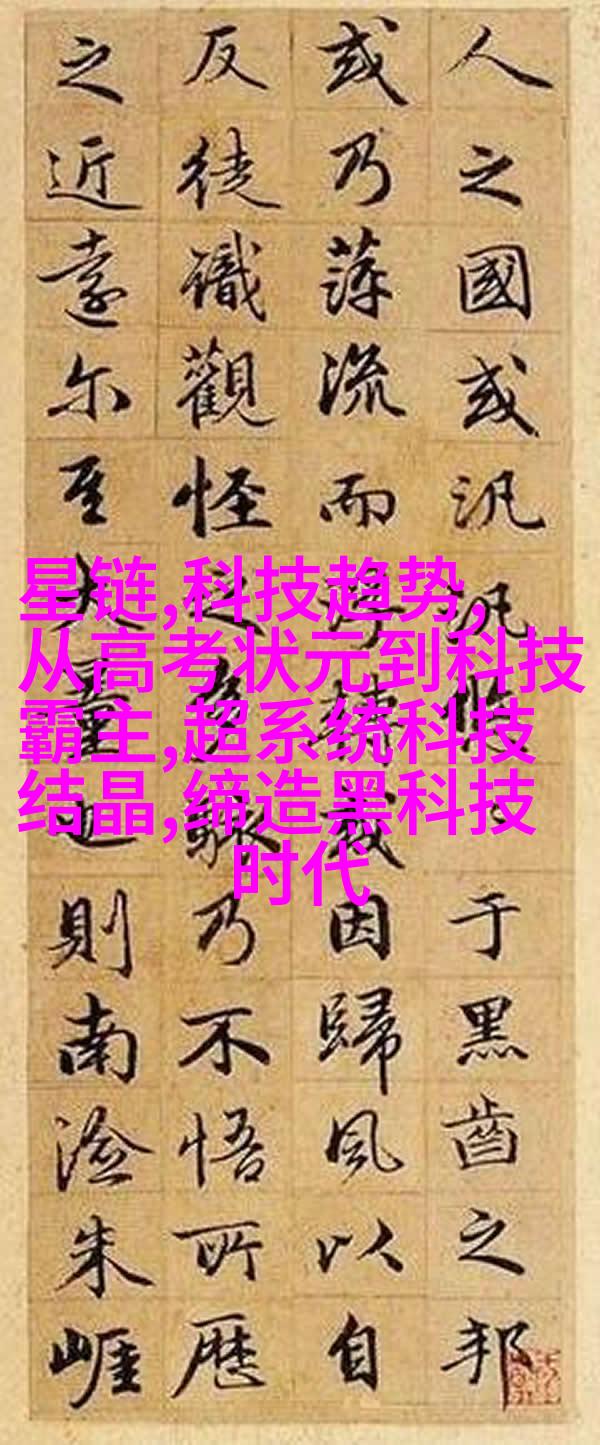 人之國或汎汎悠于黑齒之邦
或乃萍流而浮轉或因歸風以自
反徒識觀怪之多駭乃不悟所歷
之近遠尔大量也則南澰朱崖
星链,科技趋势,
从高考状元到科技
霸主,超系统科技
结晶,缔造黑科技
时代